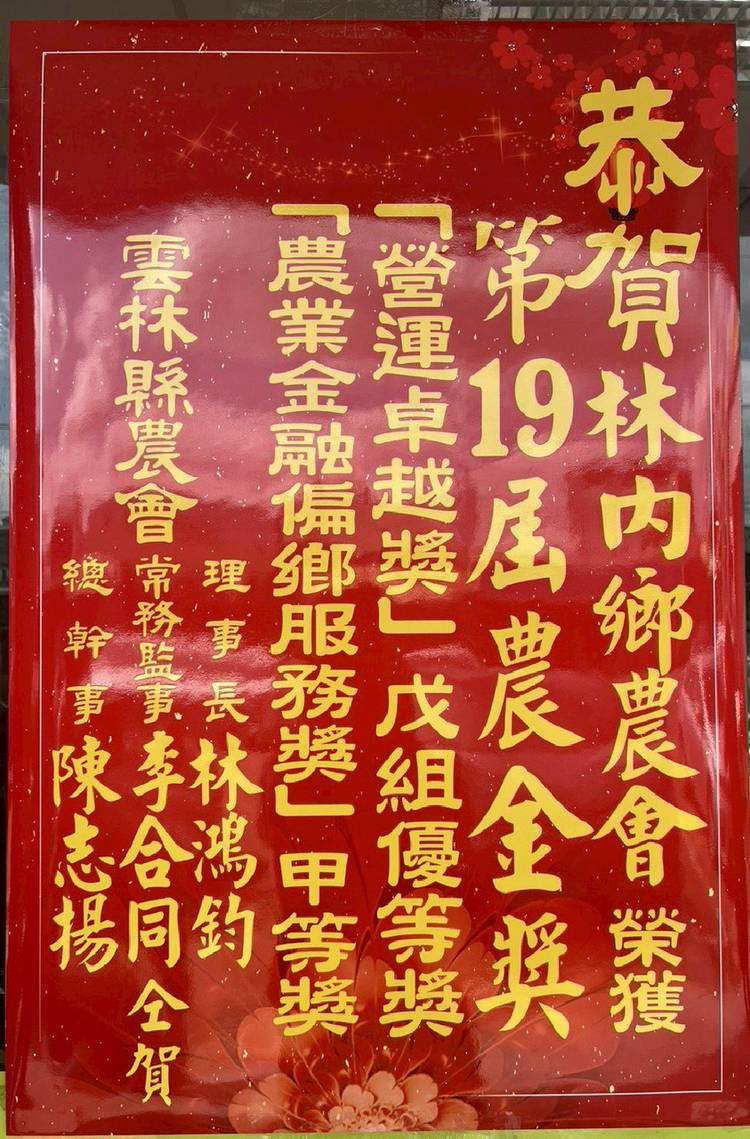 恭賀林內鄉農會榮獲
第19屆農金獎
「營運卓越獎」戊組優等獎
「農業金融偏鄉服務獎」甲等獎
雲林縣農會
理事長林鴻鈞
常務監事李合同
總幹事陳志揚
仝賀